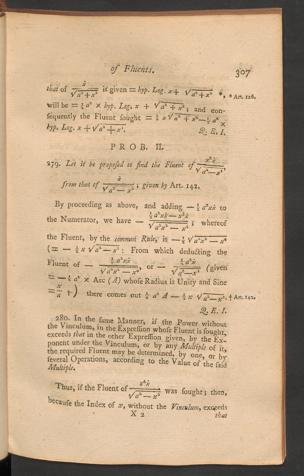 of Fluents. 307
that of ẋ/√a²+x² is given = hyp. Log. x + √a²+x² *, * Art. 126.
will be = ½ a² × hyp. Log. x + √a²+x²; and con-
sequently the Fluent sought = ½ x √a²+x² − ½ a² ×
hyp. Log. x + √a²+x². Q. E. I.
PROB. II.
279. Let it be proposed to find the Fluent of x²ẋ/√a²−x²,
from that of ẋ/√a²−x², given by Art. 142.
By proceeding as above, and adding − ½ a²xẋ to
the Numerator, we have − ½a²xẋ−x³ẋ/√a²x²−x⁴; whereof
the Fluent, by the common Rule, is −½ √a²x²−x⁴
(= − ½ x √a²−x²: From which deducting the
Fluent of − ½a²xẋ/√a²x²−x⁴, or − ½a²ẋ/√a²−x² (given
= − ½ a² × Arc (A) whose Radius is Unity and Sine
= x/a †) there comes out ½ a² A − ½ x √a²−x². † Art. 142.
Q. E. I.
280. In the same Manner, if the Power without
the Vinculum, in the Expression whose Fluent is sought,
exceeds that in the other Expression given, by the Ex-
ponent under the Vinculum, or by any Multiple of it,
the required Fluent may be determined, by one, or by
several Operations, according to the Value of the said
Multiple.
Thus, if the Fluent of x⁴ẋ/√a²−x² was sought; then,
because the Index of x, without the Vinculum, exceeds
X 2 that